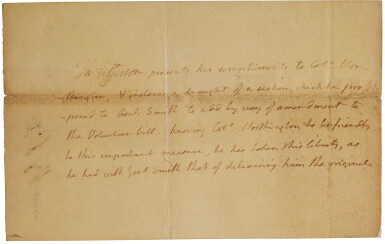 Th Jefferson presents his compliments to Colo. Wor-
-thington, & incloses a draught of a section, which he pro-
-posed to Genl. Smith to add by way of amendment to
the Volunteer bill. knowing Colo. Worthington to be friendly
to this important measure, he has taken this liberty, as
he had with Genl Smith that of delivering him the original